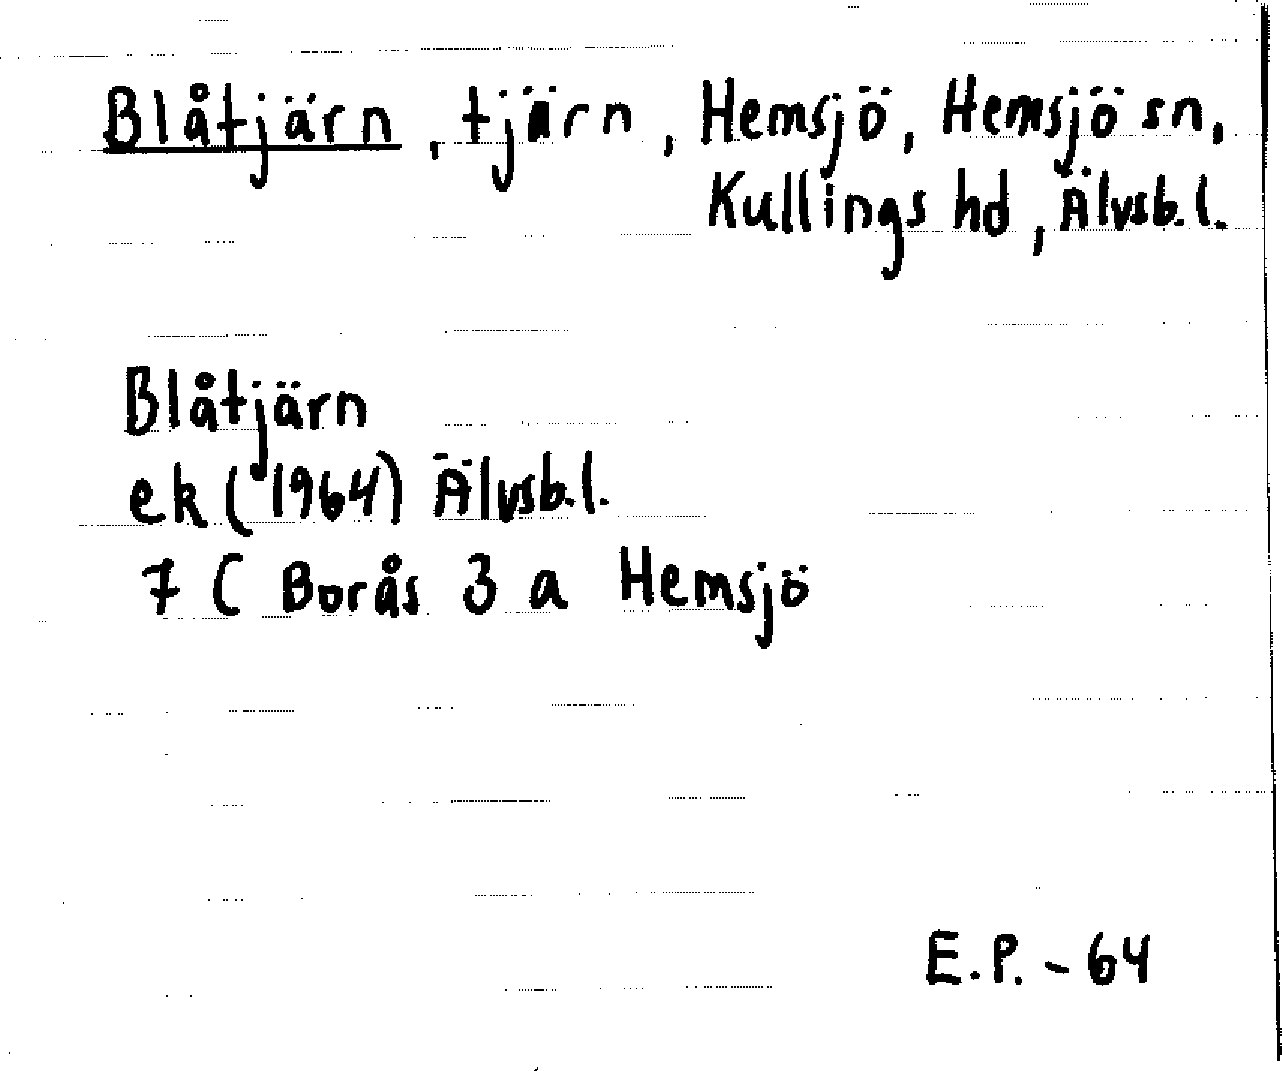 Blåtjärn, tjärn, Hemsjö, Hemsjö sn,
Kullings hd, Älvsb. l.
Blåtjärn
ek (1964) Älvsb. l.
7 C Borås 3 a Hemsjö
E.P. - 64